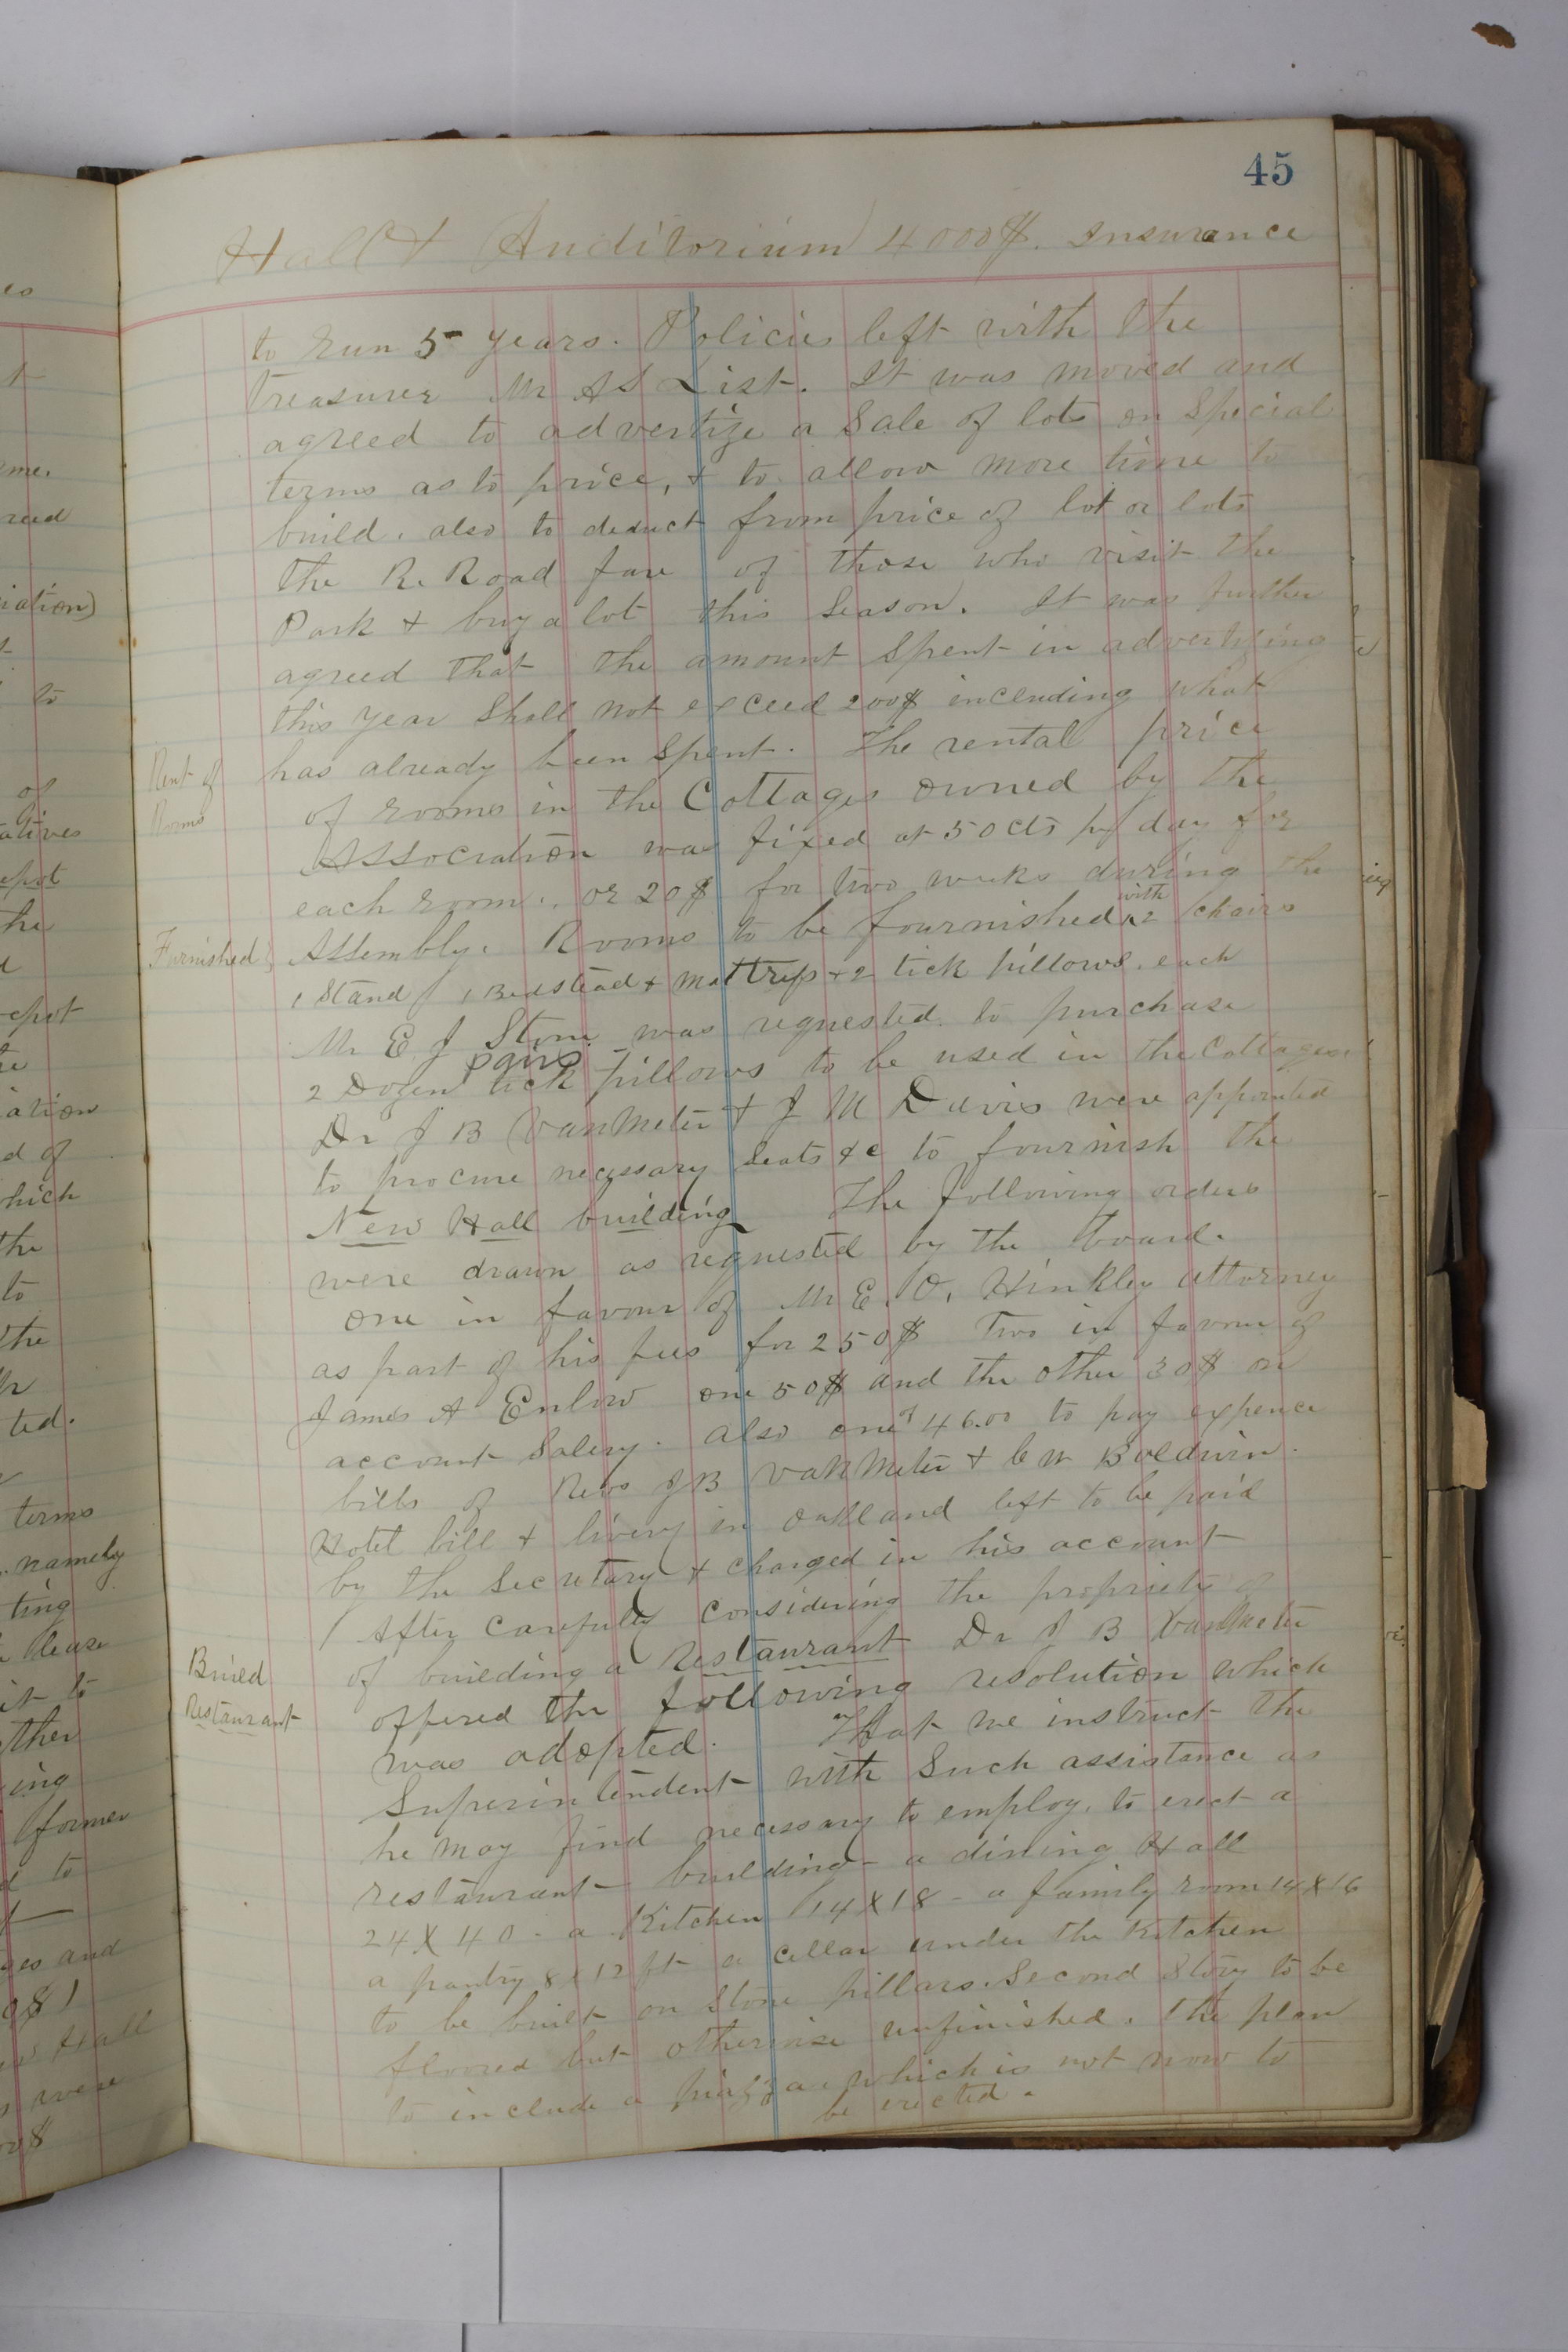 45
Hall & Auditorium 4000$. Insurance
to run 5 years. Policies left with the
treasurer Mr A S List. It was moved and
agreed to advertize a Sale of lots on Special
terms as to price, & to allow more time to
build. also to deduct from price of lot or lots
the R. Road fare of those who visit the
Park & buy a lot this Season. It was further
agreed that the amount Spent in advertising
this year Shall not exceed 200$ including what
has already been Spent. The rental price
Rent of
Rooms
of rooms in the Cottages owned by the
Association was fixed at 50 cts pr day for
each room. or 20$ for two weeks during the
Furnished
Assembly. Rooms to be fournished with 2 chairs
1 Stand 1 Bedstead & mattress & 2 tick pillows each
Mr E J Stone was requested to purchase
2 Dozen pairs tick pillows to be used in the Cottages
Dr J B VanMeter & J M Davis were appointed
to procure necessary Seats &c to fournish the
New Hall building The following orders
were drawn as requested by the Board.
one in favour of Mr E. O. Hinkley attorney
as part of his fees for 250$ Two in favour of
James A Enlow one 50$ and the other 30$ on
account Salery. also one of 46.00 to pay expence
bills of Revs J B VanMeter & C W Baldwin.
Hotel bill & livery in Oakland left to be paid
by the Secretary & charged in his account
After Carefully Considering the propriety of
Build
Restaurant
of building a Restaurant Dr J B VanMeter
offered the following resolution which
was adopted. That we instruct the
Superintendent with Such assistance as
he may find necessary to employ, to erect a
restaurant building - a dining Hall
24 X 40 - a Kitchen 14 X 18 - a family room 14 X 16
a pantry 8 x 12 ft a cellar under the Kitchen
to be built on Stone pillars. Second Story to be
floored but otherwise unfinished. The plan
to include a piazza which is not now to
be erected.